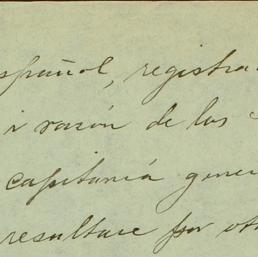 español, registra
i razón de las
capitanía gene
resultare por ot